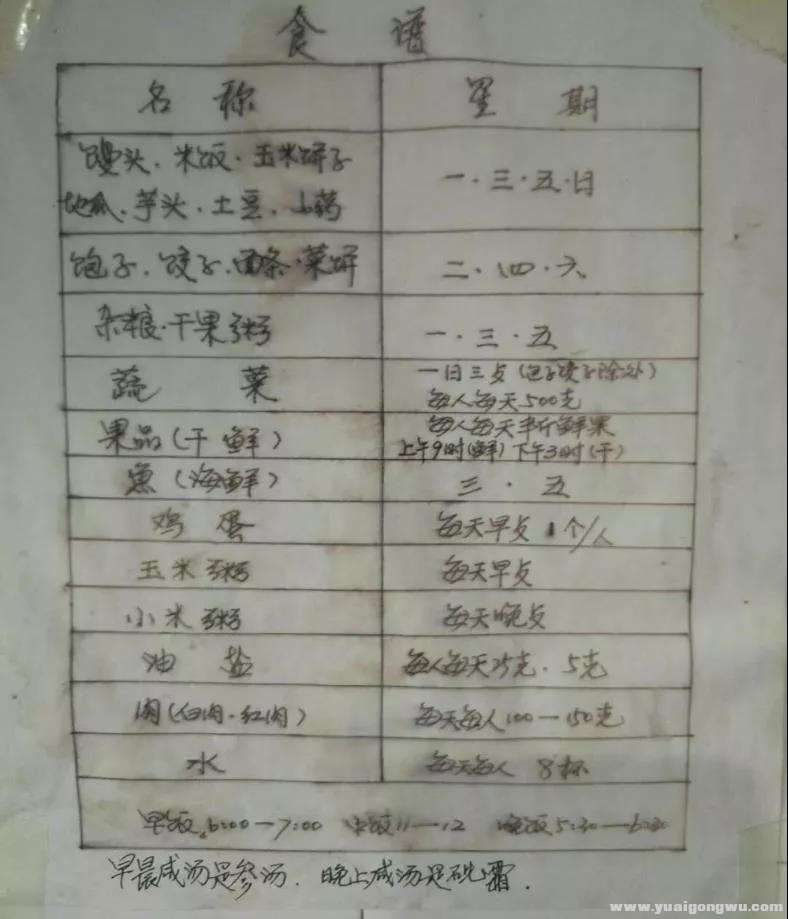 食 谱
名 称
星 期
馒头、米饭·玉米饼子
地瓜、芋头·土豆、山药
一·三·五·日
饱子、饺子、面条·菜饼
二·四·六
杂粮·干果粥
一·三·五
蔬 菜
一日三歺(包子饺子除外)
每人每天500克
果品(干 鲜)
每人每天半斤鲜果
上午9时(鲜)下午3时(干)
鱼(海鲜)
三·五
鸡 蛋
每天早歺 1个/人
玉米粥
每天早歺
小米粥
每天晚歺
油 盐
每人每天25克·5克
肉(白肉·红肉)
每天每人100—150克
水
每天每人 8杯
早饭6:00—7:00 中饭11—12 晚饭5:30—6:30
早晨咸汤是参汤、晚上咸汤是砒霜.
www.yuaigongwu.com